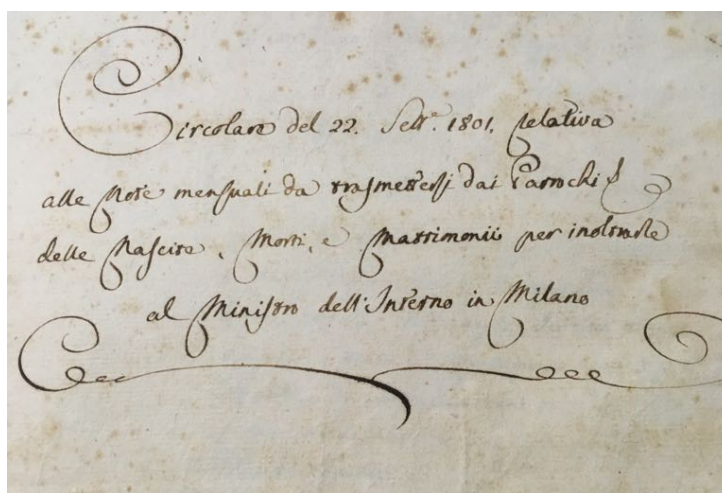 Circolare del 22. Settᵉ. 1801. relativa
alle Note mensuali da trasmettersi dai Parrochi
delle Nascite, Morti, e Matrimonii per inoltrarle
al Ministro dell'Interno in Milano